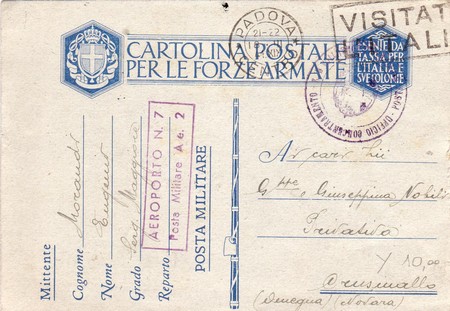 CARTOLINA POSTALE
PER LE FORZE ARMATE
ESENTE DA
TASSA PER
L'ITALIA E
SVE COLONIE
PADOVA
21-22
VISITAT
L'ITALI
UFFICIO CONCENTRAMENTO
POST
AEROPORTO N. 7
Posta Militare A.e. 2
Mittente
Cognome Morandi
Nome Eugenio
Grado Serg. Maggiore
Reparto
POSTA MILITARE
Ai cari Zii
G.ppe e Giuseppina Nobili
Privativa
Y 10,00
Crusinallo
(Omegna) (Novara)